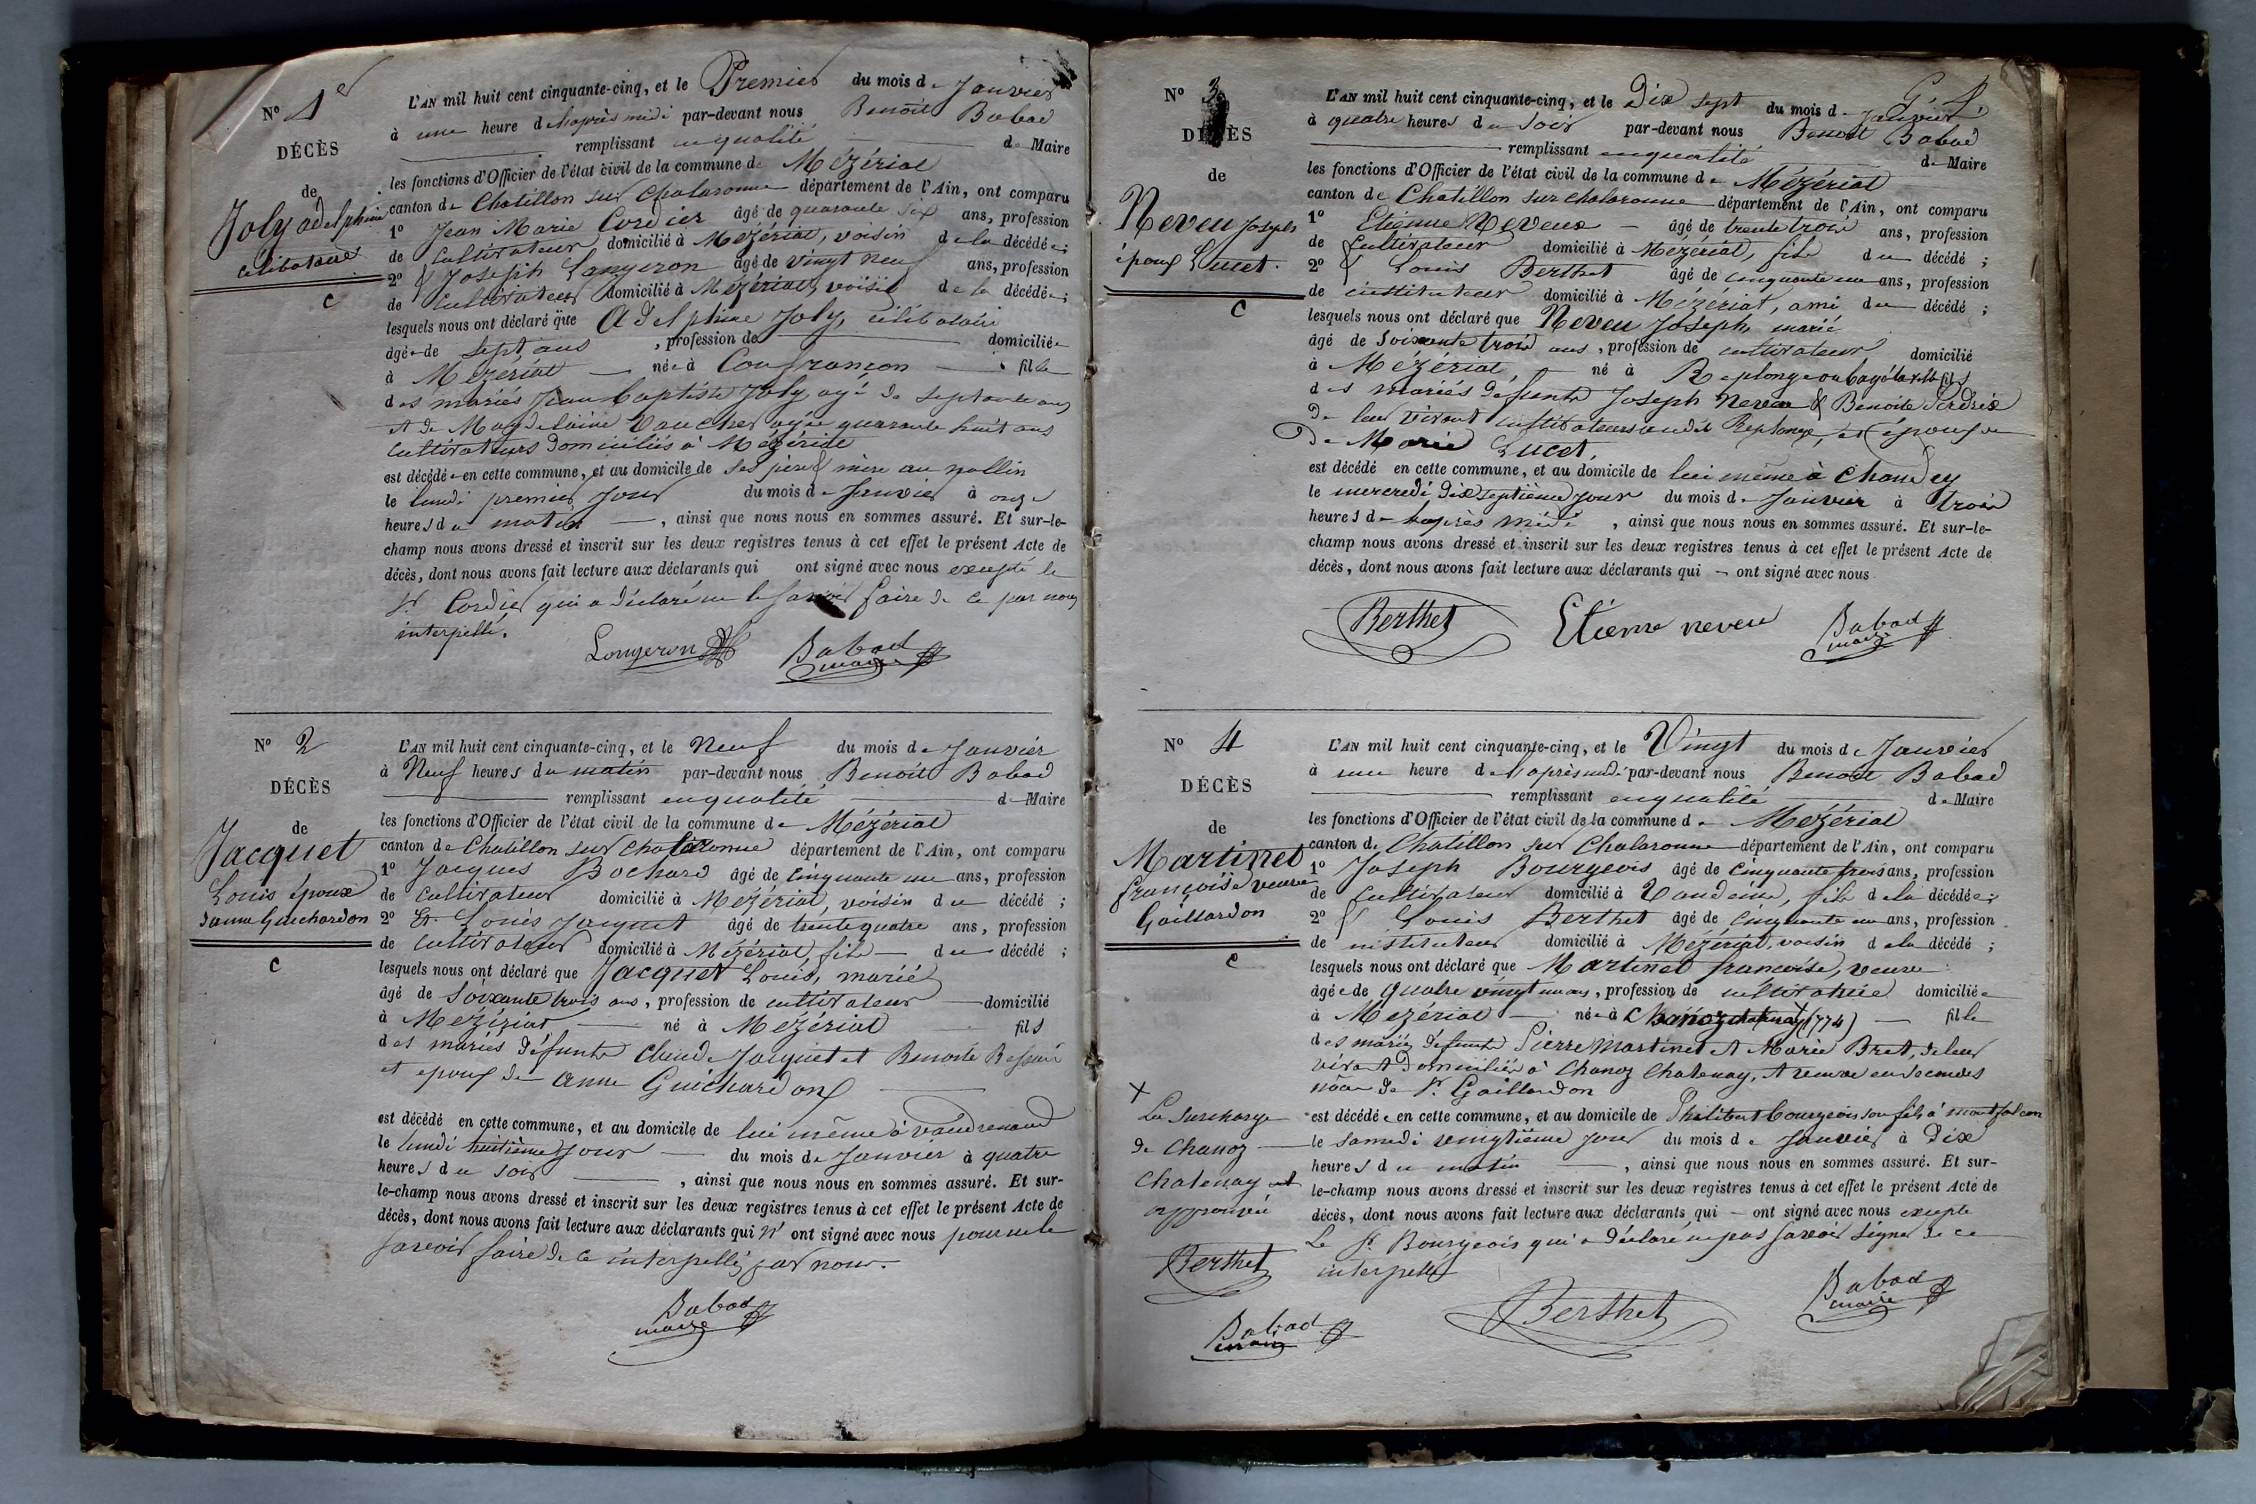 N° 1er
DÉCÈS
de
Joly adelphine
celibataire
C
L'AN mil huit cent cinquante-cinq, et le Premier du mois de Janvier
à une heure de l'après midi par-devant nous Benoit Babad
remplissant en qualité de Maire
les fonctions d'Officier de l'état civil de la commune de Mézériat
canton de Chatillon sur Chalaronne département de l'Ain, ont comparu
1° Jean Marie Cordier âgé de quarante six ans, profession
de Cultivateur domicilié à Mézériat, voisin de la décédée;
2° & Joseph Longeron âgé de vingt neuf ans, profession
de Cultivateur domicilié à Mézériat, voisin de la décédée;
lesquels nous ont déclaré que Adelphine Joly, célibataire
âgée de sept ans, profession de domiciliée
à Mézériat née à Confrançon fille
des mariés Jean Baptiste Joly agé de septante ans
et de Magdelaine Vaucher agée quarante huit ans
cultivateurs domiciliés à Mézériat
est décédée en cette commune, et au domicile de ses père & mère au pollin
le lundi premier jour du mois de Janvier à onze
heures du matin, ainsi que nous nous en sommes assuré. Et sur-le-
champ nous avons dressé et inscrit sur les deux registres tenus à cet effet le présent Acte de
décès, dont nous avons fait lecture aux déclarants qui ont signé avec nous excepté le
Sr Cordier qui a déclaré ne le savoir faire de ce par nous
interpellé.
Longeron Babad
maire
N° 2
DÉCÈS
de
Jacquet
Louis époux
d'anne Guichardon
C
L'AN mil huit cent cinquante-cinq, et le Neuf du mois de Janvier
à Neuf heures du matin par-devant nous Benoit Babad
remplissant en qualité de Maire
les fonctions d'Officier de l'état civil de la commune de Mézériat
canton de Chatillon sur Chalaronne département de l'Ain, ont comparu
1° Jacques Bochard âgé de Cinquante un ans, profession
de Cultivateur domicilié à Mézériat, voisin du décédé;
2° Et Louis Jacquet âgé de trente quatre ans, profession
de Cultivateur domicilié à Mézériat, fils du décédé;
lesquels nous ont déclaré que Jacquet Louis, marié
âgé de Soixante trois ans, profession de cultivateur domicilié
à Mézériat né à Mézériat fils
des mariés défunts Claude Jacquet et Benoite
et epoux de Anne Guichardon
est décédé en cette commune, et au domicile de lui même à vaudrenand
le lundi huitième jour du mois de Janvier à quatre
heures du soir, ainsi que nous nous en sommes assuré. Et sur-
le-champ nous avons dressé et inscrit sur les deux registres tenus à cet effet le présent Acte de
décès, dont nous avons fait lecture aux déclarants qui n' ont signé avec nous pour ne le
savoir faire de ce interpellés par nous.
Babad
maire
N° 3
DÉCÈS
de
Neveu Joseph
époux Lucet.
C
L'AN mil huit cent cinquante-cinq, et le Dix sept du mois de Janvier
à quatre heures du Soir par-devant nous Benoit Babad
remplissant en qualité de Maire
les fonctions d'Officier de l'état civil de la commune de Mézériat
canton de Chatillon sur Chalaronne département de l'Ain, ont comparu
1° Etienne Neveux âgé de trente trois ans, profession
de Cultivateur domicilié à Mézériat, fils du décédé;
2° & Louis Berthet âgé de cinquante un ans, profession
de instituteur domicilié à Mézériat, ami du décédé;
lesquels nous ont déclaré que Neveu Joseph, marié
âgé de Soixante trois ans, profession de cultivateur domicilié
à Mézériat, né à Replonge ou bagé la ville fils
des mariés défunts Joseph Neveu & Benoite Perdrix
de leur vivant cultivateurs audit Replonge, et époux
de Marie Lucet,
est décédé en cette commune, et au domicile de lui même à Chandey
le mercredi dix septième jour du mois de Janvier à trois
heures de l'après midi, ainsi que nous nous en sommes assuré. Et sur-le-
champ nous avons dressé et inscrit sur les deux registres tenus à cet effet le présent Acte de
décès, dont nous avons fait lecture aux déclarants qui ont signé avec nous
Berthet Etienne neveu Babad
maire
N° 4
DÉCÈS
de
Martinet
françoise veuve
Gaillardon
C
L'AN mil huit cent cinquante-cinq, et le Vingt du mois de Janvier
à une heure de l'après midi par-devant nous Benoit Babad
remplissant en qualité de Maire
les fonctions d'Officier de l'état civil de la commune de Mézériat
canton de Chatillon sur Chalaronne département de l'Ain, ont comparu
1° Joseph Bourgeois âgé de cinquante trois ans, profession
de Cultivateur domicilié à Vandeins, fils de la décédée;
2° & Louis Berthet âgé de Cinquante un ans, profession
de instituteur domicilié à Mézériat, voisin de la décédé;
lesquels nous ont déclaré que Martinet francoise, veuve
âgée de quatre vingt un ans, profession de cultivatrice domiciliée
à Mézériat née à Chanoz chatenay (1774) fille
des mariés défunts Pierre Martinet et Marie Bret, de leur
vivant domiciliés à Chanoz Chatenay, et veuve en secondes
noces de Sr Gaillardon
est décédée en cette commune, et au domicile de Philibert Bourgeois son fils à montfalcon
le samedi vingtième jour du mois de Janvier à Dix
heures du matin, ainsi que nous nous en sommes assuré. Et sur-
le-champ nous avons dressé et inscrit sur les deux registres tenus à cet effet le présent Acte de
décès, dont nous avons fait lecture aux déclarants qui ont signé avec nous excepté
Le Sr Bourgeois qui a déclaré ne pas savoir signer de ce
interpellé
Berthet Babad
maire
X
La surcharge
de Chanoz
Chatenay est
approuvée
Berthet
Babad
maire